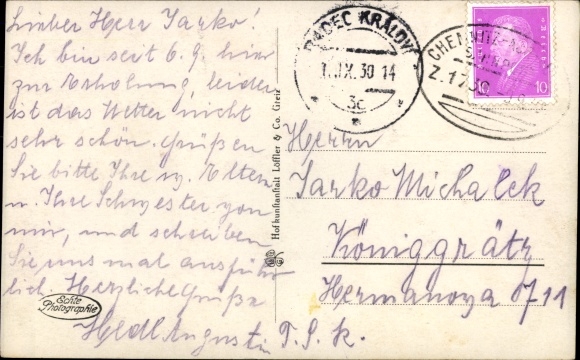 Lieber Herr Jarko!
Ich bin seit 6.9. hier
zur Erholung, leider
ist das Wetter nicht
sehr schön. Grüßen
Sie bitte Ihre w. Eltern
u. Ihre Schwester von
mir, und schreiben
Sie uns mal ausführ
lich. Herzliche Grüße
Hedl Augustin
Echte
Photographie
Hofkunstanstalt Löffler & Co. Greiz
RADEC KRÁLOV
IX.30 14
3c
CHEMNITZ-A
Z.17
10 10
Herrn
Jarko Michalek
Königgrätz
Hermanova 711
Č.S.R.